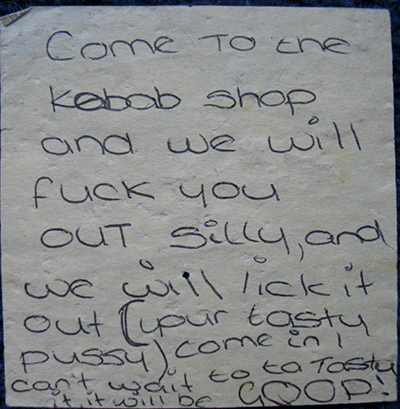 Come to the
kebab shop
and we will
fuck you
out silly, and
we will lick it
out (your tasty
pussy) come in 1
can't wait to ta Tasty
it, it will be GOOD!